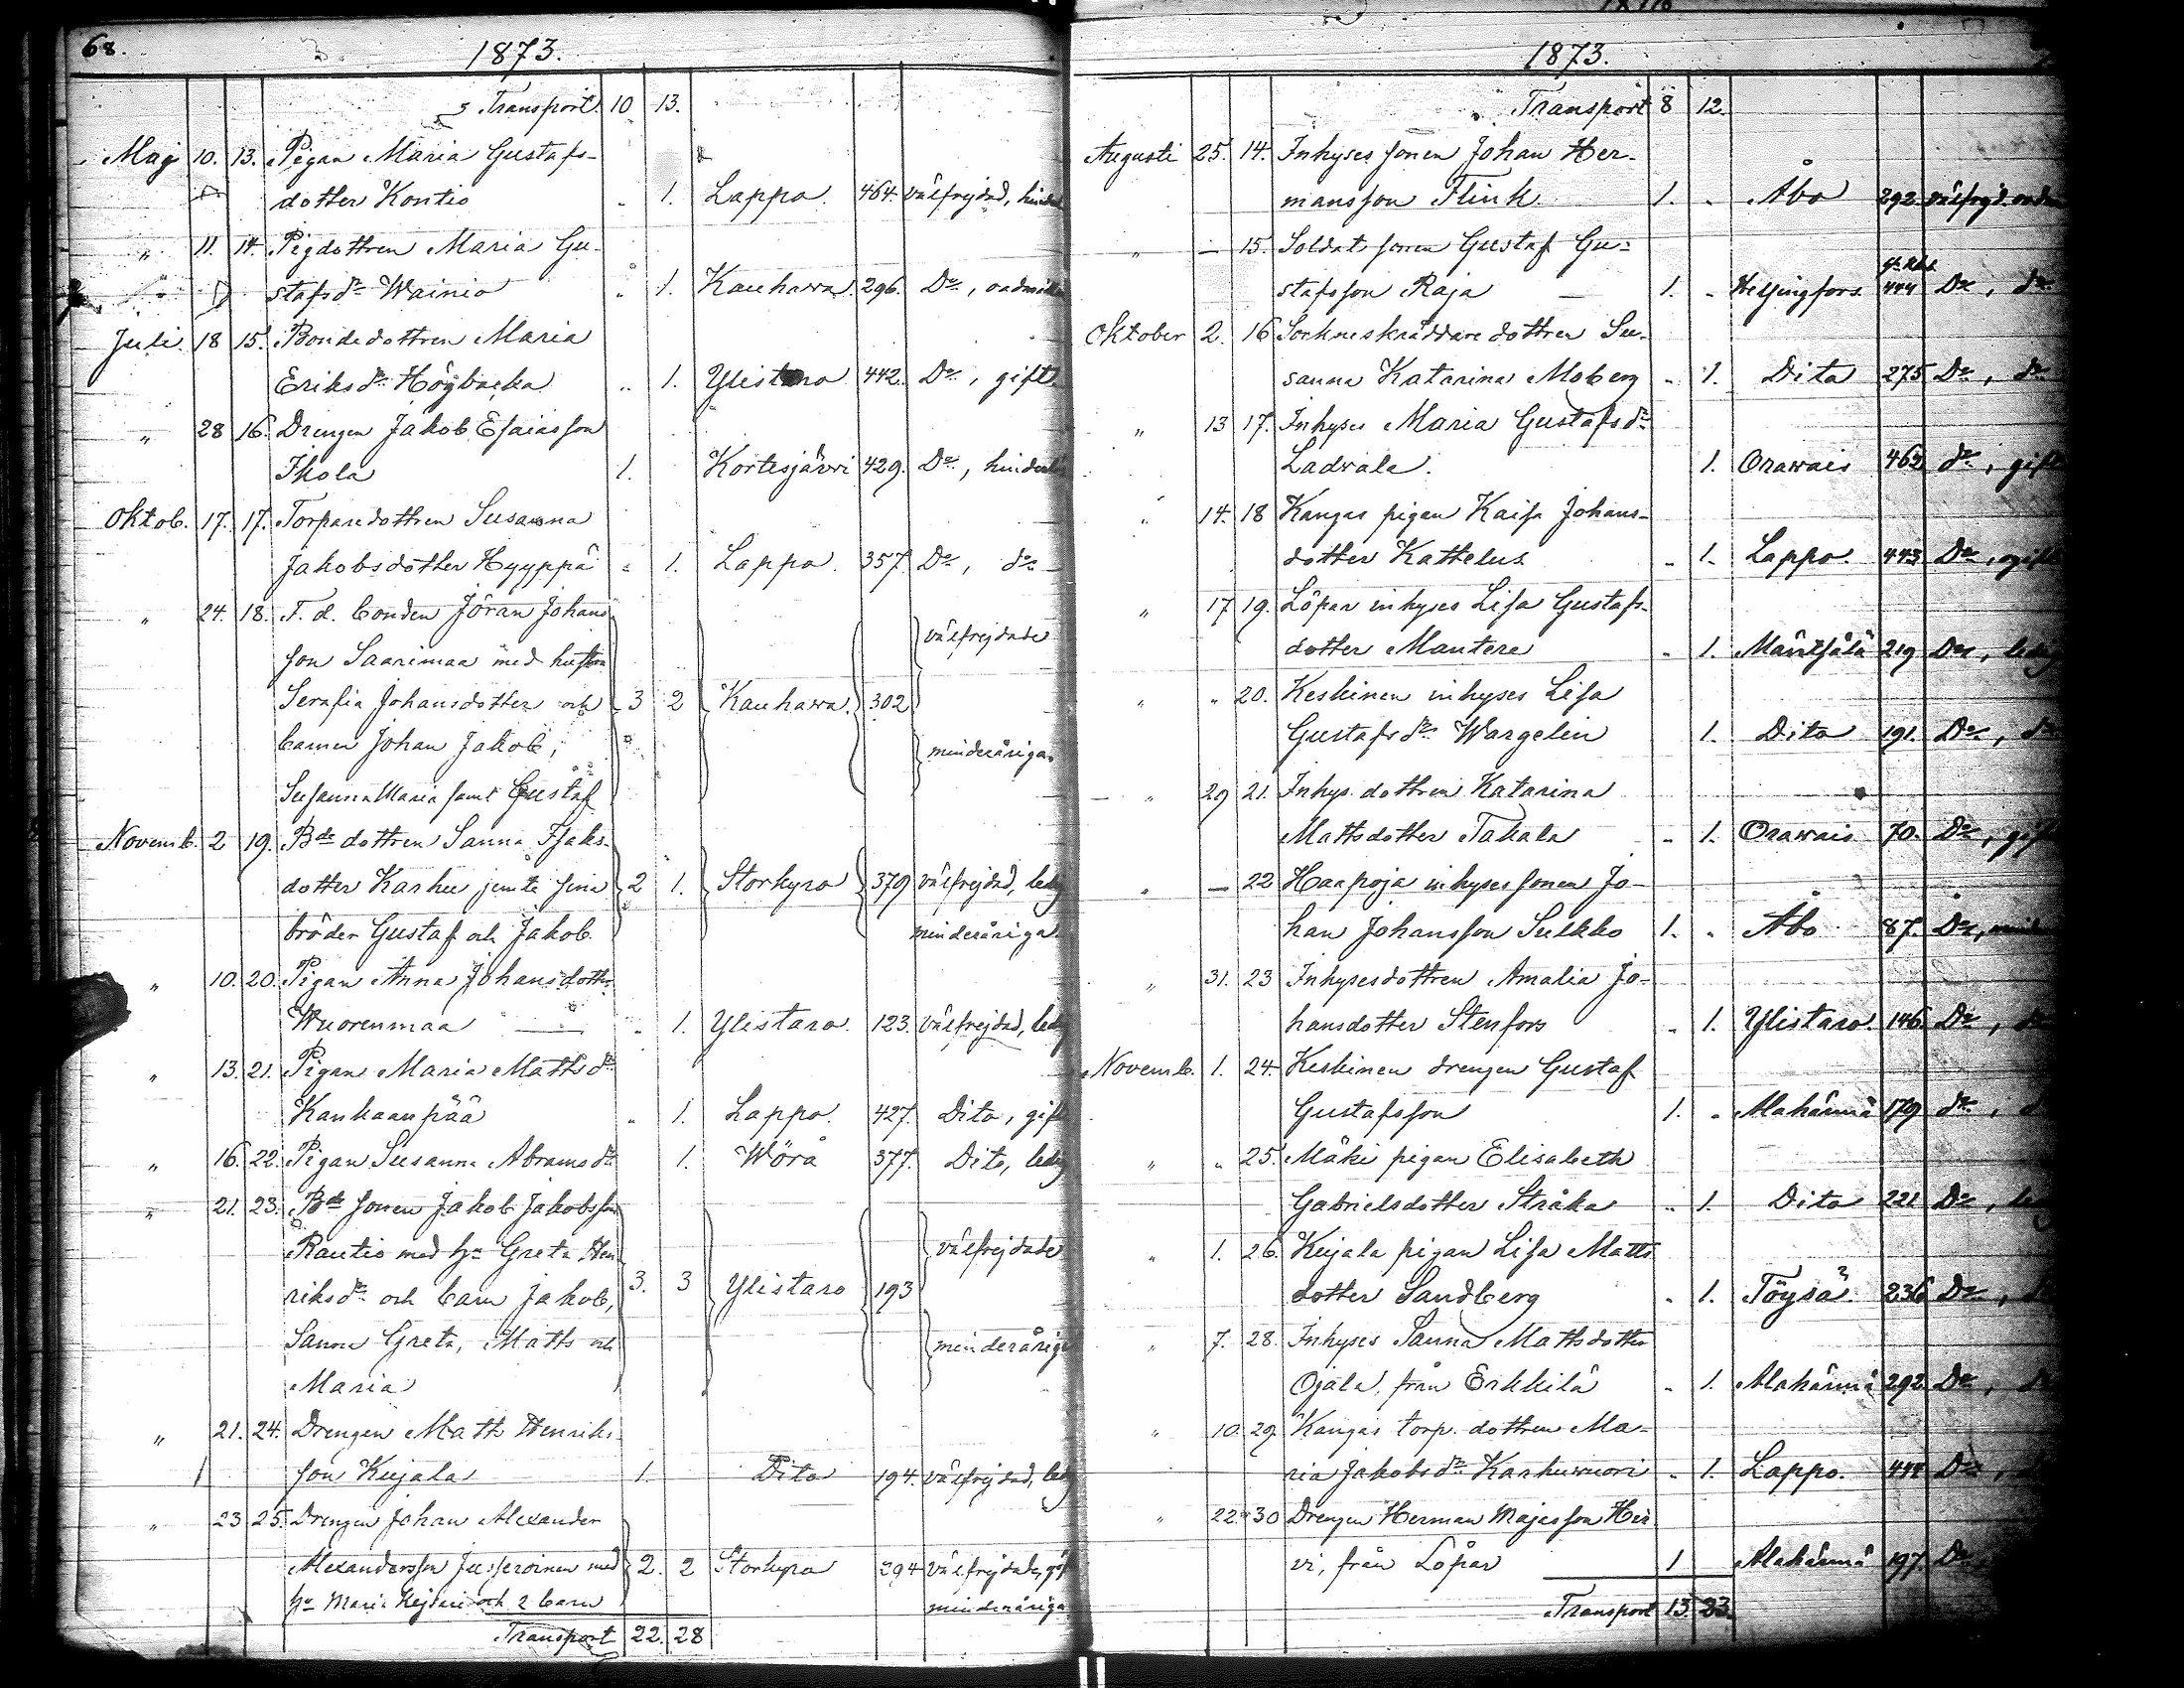 68.
1873.
Transport 10 13.
Maj 10. 13. Pigan Maria Gustafs-
dotter Kontio „ 1. Lappo. 464. välfrejdad,
„ 11. 14. Pigdottren Maria Gu-
stafsdr Wainio „ 1. Kauhawa. 296. Do,
Juli 18 15. Bondedottren Maria
Eriksdr Högbacka „ 1. Ylistaro 442. Do, gift.
„ 28 16. Drengen Jakob Esaiasson
Ikola 1. Kortesjärvi 429. Do,
Oktob. 17. 17. Torparedottren Susanna
Jakobsdotter Hyyppä „ 1. Lappo. 357. Do, do
„ 24. 18. F. d. bonden Jöran Johans
son Saarimaa med hustru välfrejdade
Serafia Johansdotter och 3 2 Kauhawa. 302
barnen Johan Jakob, minderåriga.
Susanna Maria samt Gustaf
Novemb. 2 19. Bde dottren Sanna Isaks-
dotter Karhu jemte sina 2 1. Storkyro 379 välfrejdad, ledig
bröder Gustaf och Jakob. minderåriga.
„ 10. 20. Pigan Anna Johansdotter
Wuorenmaa „ 1. Ylistaro. 123. välfrejdad, ledig
„ 13. 21. Pigan Maria Mattsdr
Kankaanpää „ 1. Lappo. 427. Dito, gift
„ 16. 22. Pigan Susanna Abramsdr 1. Wörå 377. Dito, ledig
„ 21. 23. Bde sonen Jakob Jakobsson
Rautio med hu Greta Hen välfrejdade
riksdr och barn Jakob, 3. 3 Ylistaro 193
Sanna Greta, Matts och minderåriga
Maria
„ 21. 24. Drengen Matts Henriks-
son Kujala 1. Dito 194. välfrejdad, ledig
„ 23 25. Drengen Johan Alexander
Alexandersson med 2. 2 Storkyro 294 välfrejdade,
hu Maria och 2 barn minderåriga
Transport 22. 28
1873.
Transport 8 12.
Augusti 25. 14. Inhyses sonen Johan Her-
mansson Flink 1. „ Åbo 292.
„ — 15. Soldat sonen Gustaf Gu-
stafsson Raja — 1. „ Helsingfors 444 Do, do
Oktober 2. 16 Sockneskräddare dottren Su-
sanna Katarina Moberg „ 1. Dito 275 Do, do
„ 13 17. Inhyses Maria Gustafsdr
Ladvala. 1. Orawais 462 do, gift
„ 14. 18 Kangas pigan Kaisa Johans-
dotter Kattelus „ 1. Lappo. 443 Do, gift
„ 17 19. Löpar inhyses Lisa Gustafs-
dotter Mantere „ 1. Mäntsälä 219 Do, ledig
„ „ 20. Keskinen inhyses Lisa
Gustafsdr Wargelin 1. Dito 191. Do, do
„ 29 21. Inhys. dottren Katarina
Mattsdotter Takala „ 1. Orawais 70. Do, gift
„ — 22 Haapoja inhyses sonen Jo-
han Johansson Sulkko 1. „ Åbo 87. Do,
„ 31. 23 Inhysesdottren Amalia Jo-
hansdotter Stenfors „ 1. Ylistaro. 146. Do,
Novemb. 1. 24. Keskinen drengen Gustaf
Gustafsson 1. „ Alahärmä 179 do,
„ „ 25. Mäki pigan Elisabeth
Gabrielsdotter Stråka „ 1. Dito 221 Do,
„ 1. 26. Kujala pigan Lisa Matts
dotter Sandberg „ 1. Töysä 236 Do,
„ 7. 28. Inhyses Sanna Mattsdotter
Ojala, från Erkkilä „ 1. Alahärmä 292 Do,
„ 10. 29 Kangas torp. dottren Ma-
ria Jakobsdr Karhuvuori „ 1. Lappo. Do,
„ 22. 30 Drengen Herman Majasson Hir
vi, från Löpar 1 Alahärmä 197. Do
Transport 13. 23.